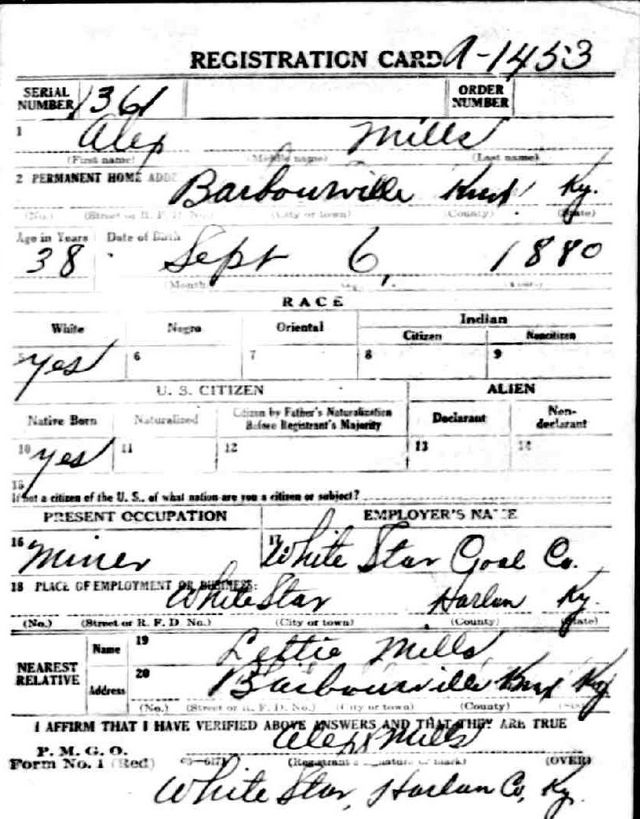 REGISTRATION CARD A-1453
SERIAL NUMBER 1361 ORDER NUMBER
1 Alex Mills
(First name) (Middle name) (Last name)
2 PERMANENT HOME ADD Barbourville Knox Ky.
(No.) (Street or R. F. D. No.) (City or town) (County) (State)
Age in Years Date of Birth
38 Sept 6, 1880
(Month
RACE
White Negro Oriental Indian
Citizen Noncitizen
5 yes 6 7 8 9
U. S. CITIZEN ALIEN
Native Born Naturalized Citizen by Father's Naturalization Before Registrant's Majority Declarant Non-declarant
10 yes 11 12 13 14
15
If not a citizen of the U. S., of what nation are you a citizen or subject?
PRESENT OCCUPATION EMPLOYER'S NAME
16 Miner 17 White Star Coal Co.
18 PLACE OF EMPLOYMENT OR BUSINESS:
White Star Harlan Ky.
(No.) (Street or R. F. D. No.) (City or town) (County) (State)
NEAREST RELATIVE Name 19 Lettie Mills
Address 20 Barbourville Knox Ky
(No.) (Street or R. F. D. No.) (City or town) (County)
I AFFIRM THAT I HAVE VERIFIED ABOVE ANSWERS AND THAT THEY ARE TRUE
Alex Mills
P. M. G. O.
Form No. 1 (Red) (Registrant's signature or mark) (OVER)
White Star, Harlan Co, Ky.